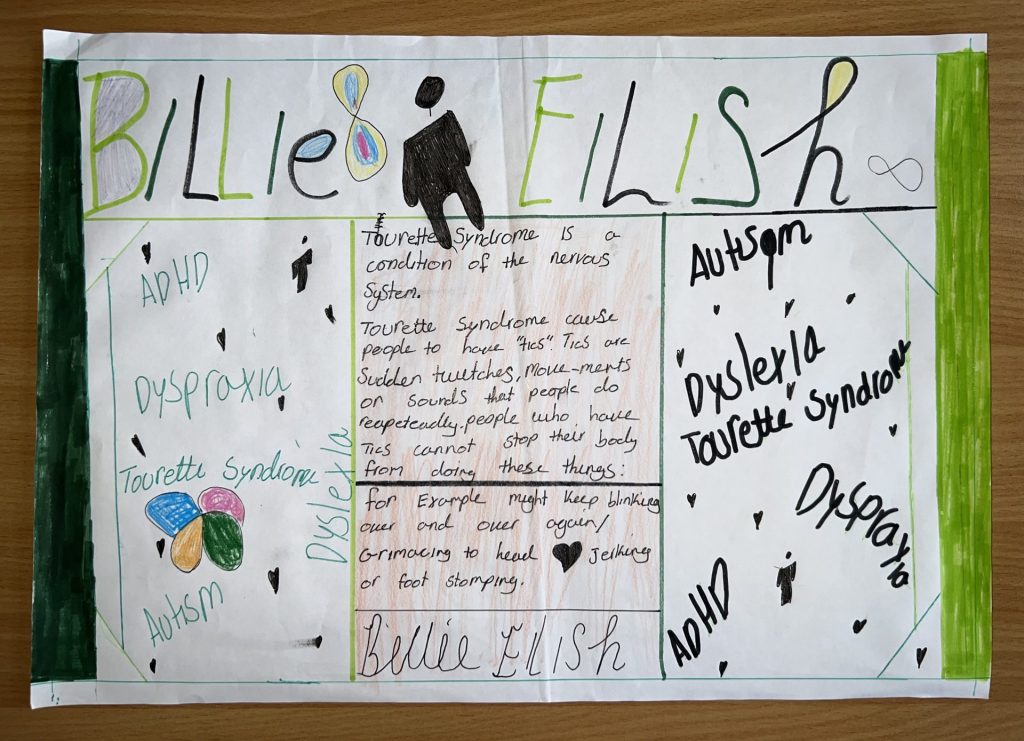 BILLIe EILISh
ADHD
Dyspraxia
Tourette Syndrome
Dyslexia
Autism
Tourette Syndrome IS a
condition of the nervous
System.
Tourette Syndrome cause
people to have "tics". Tics are
Sudden twitches, move-ments
or sounds that people do
reapeteadly. people who have
Tics cannot stop their body
from doing these things:
for Example might keep blinking
over and over again/
Grimacing to head Jerking
or foot stomping.
Billie Eilish
Autism
Dyslexia
Tourette Syndrome
Dyspraxia
ADHD